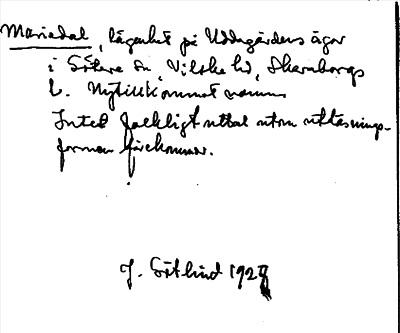 Mariedal, lägenhet på Uddagårdens ägor
i Sörby sn, Vilske hd, Skaraborgs
l. Nytillkommet namn
Intet folkligt uttal utom uttalsnings-
formen förekommer.
J. Götlind 1927